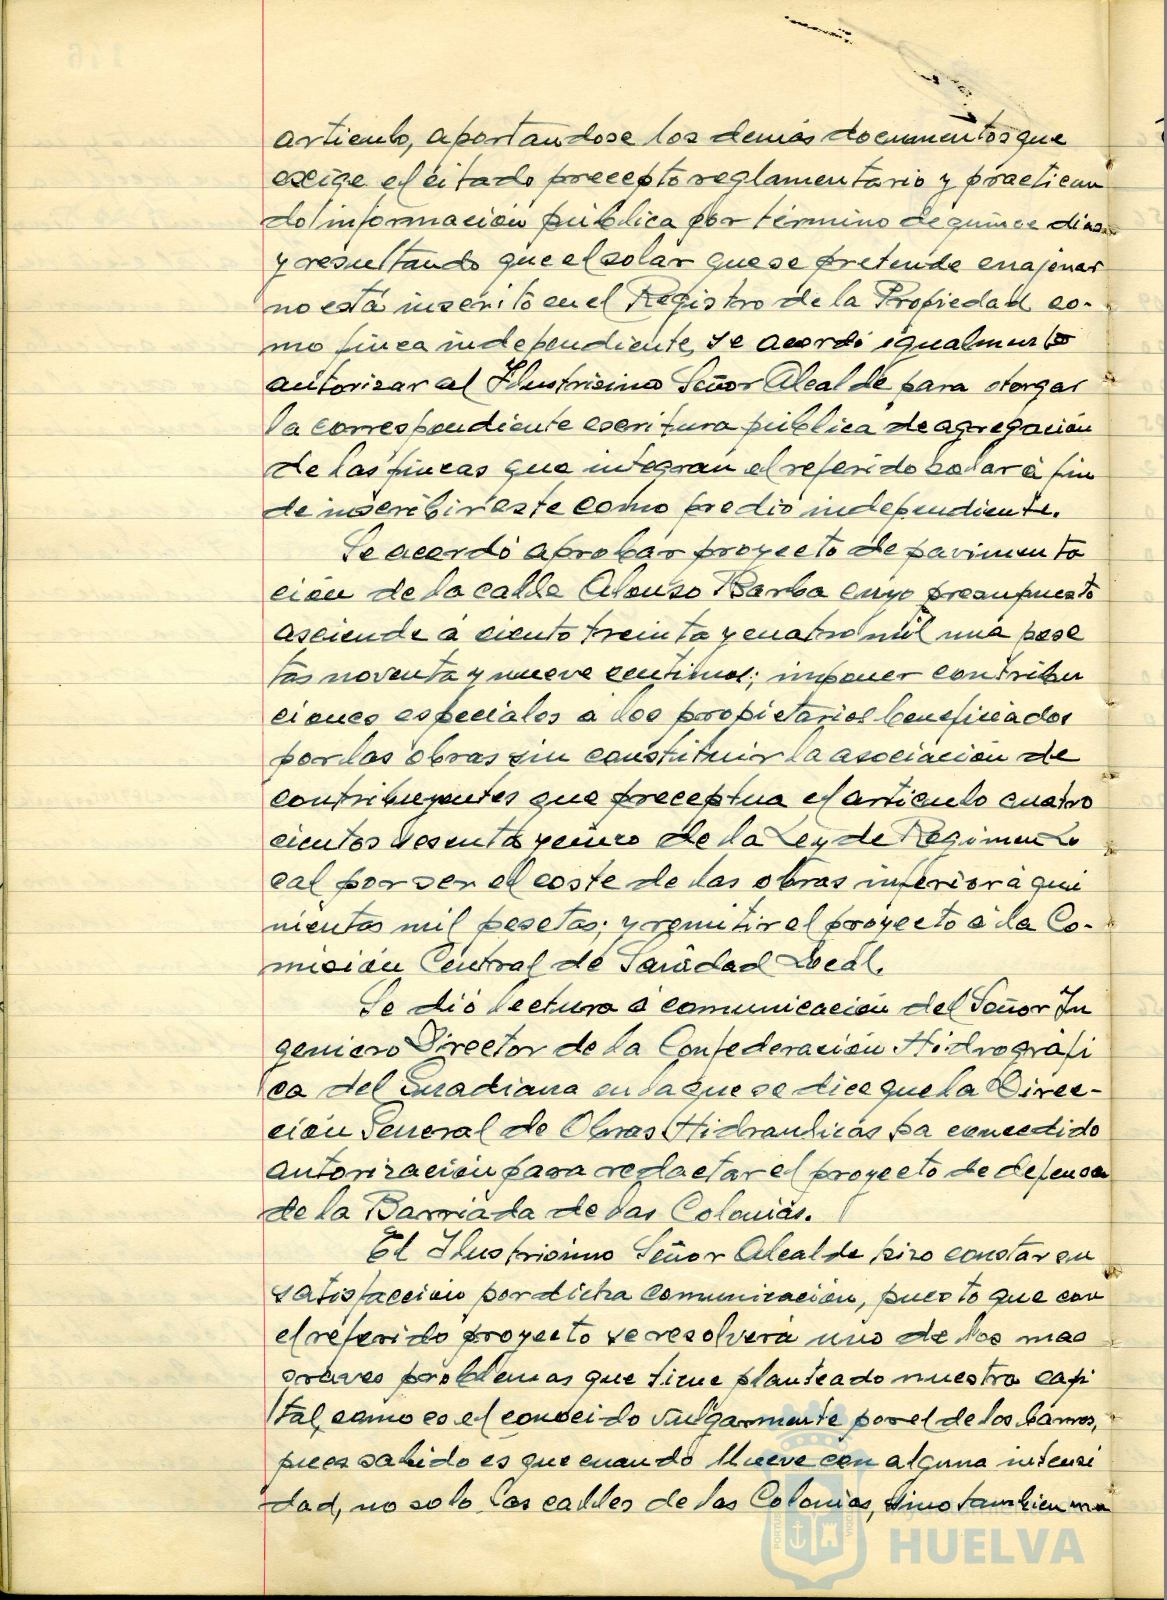 articulo, aportandose los demás documentos que
exige el citado precepto reglamentario y practican
do información pública por término de quince dias
y resultando que el solar que se pretende enajenar
no está inscrito en el Registro de la Propiedad co-
mo finca independiente, se acordó igualmente
autorizar al Ilustrisimo Señor Alcalde para otorgar
la correspondiente escritura pública de agregación
de las fincas que integran el referido solar á fin
de inscribir este como predio independiente.
Se acordó aprobar proyecto de pavimenta
ción de la calle Alonso Barba cuyo presupuesto
asciende á ciento treinta y cuatro mil una pese
tas noventa y nueve centimos; imponer contribu
ciones especiales a los propietarios beneficiados
por las obras sin constituir la asociación de
contribuyentes que preceptua el articulo cuatro
cientos sesenta y cinco de la Ley de Regimen Lo
cal por ser el coste de las obras inferior á qui
nientas mil pesetas; y remitir el proyecto á la Co-
misión Central de Sanidad Local.
Se dió lectura á comunicación del Señor In
geniero Director de la Confederación Hidrográfi
ca del Guadiana en la que se dice que la Direc-
ción General de Obras Hidraulicas ha concedido
autorización para redactar el proyecto de defensa
de la Barriada de las Colonias.
El Ilustrisimo Señor Alcalde hizo constar su
satisfacción por dicha comunicación, puesto que con
el referido proyecto se resolverá uno de los mas
graves problemas que tiene planteado nuestra capi
tal como es el conocido vulgarmente por el de los barros,
pues sabido es que cuando llueve con alguna intensi
dad, no solo las calles de las Colonias, sino tambien una
Ayuntamiento de
HUELVA